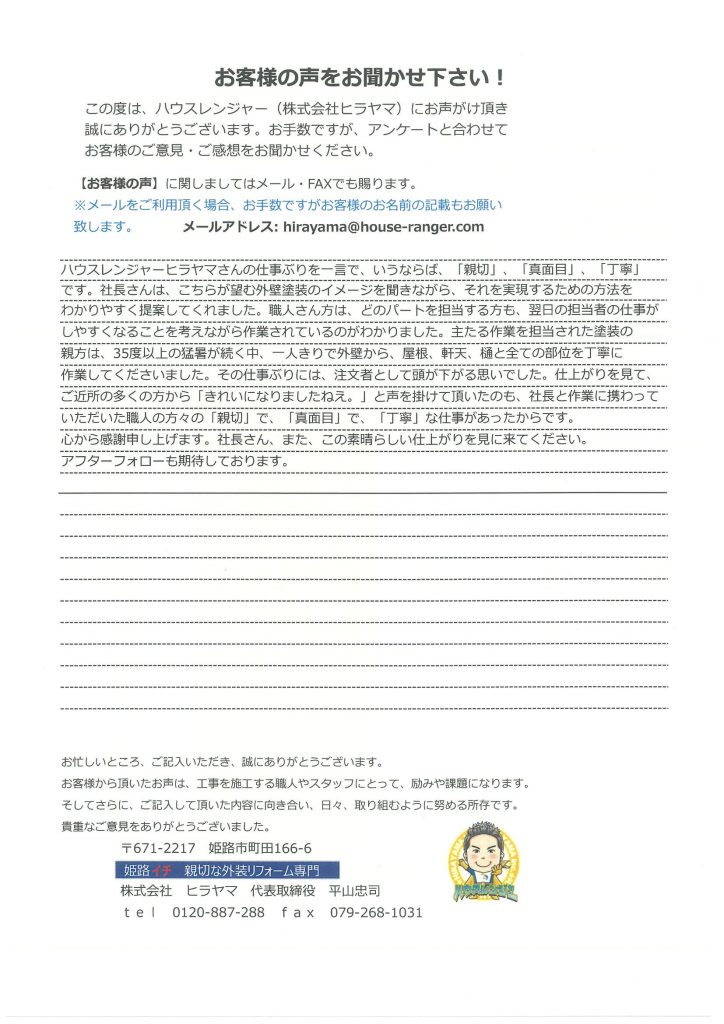 お客様の声をお聞かせ下さい！
この度は、ハウスレンジャー（株式会社ヒラヤマ）にお声がけ頂き
誠にありがとうございます。お手数ですが、アンケートと合わせて
お客様のご意見・ご感想をお聞かせください。
【お客様の声】に関しましてはメール・FAXでも賜ります。
※メールをご利用頂く場合、お手数ですがお客様のお名前の記載もお願い
致します。 メールアドレス: hirayama@house-ranger.com
ハウスレンジャーヒラヤマさんの仕事ぶりを一言で、いうならば、「親切」、「真面目」、「丁寧」
です。社長さんは、こちらが望む外壁塗装のイメージを聞きながら、それを実現するための方法を
わかりやすく提案してくれました。職人さん方は、どのパートを担当する方も、翌日の担当者の仕事が
しやすくなることを考えながら作業されているのがわかりました。主たる作業を担当された塗装の
親方は、35度以上の猛暑が続く中、一人きりで外壁から、屋根、軒天、樋と全ての部位を丁寧に
作業してくださいました。その仕事ぶりには、注文者として頭が下がる思いでした。仕上がりを見て、
ご近所の多くの方から「きれいになりましたねえ。」と声を掛けて頂いたのも、社長と作業に携わって
いただいた職人の方々の「親切」で、「真面目」で、「丁寧」な仕事があったからです。
心から感謝申し上げます。社長さん、また、この素晴らしい仕上がりを見に来てください。
アフターフォローも期待しております。
お忙しいところ、ご記入いただき、誠にありがとうございます。
お客様から頂いたお声は、工事を施工する職人やスタッフにとって、励みや課題になります。
そしてさらに、ご記入して頂いた内容に向き合い、日々、取り組むように努める所存です。
貴重なご意見をありがとうございました。
〒671-2217 姫路市町田166-6
姫路イチ 親切な外装リフォーム専門
株式会社 ヒラヤマ 代表取締役 平山忠司
ｔｅｌ 0120-887-288 ｆａｘ 079-268-1031
ハウスレンジャー